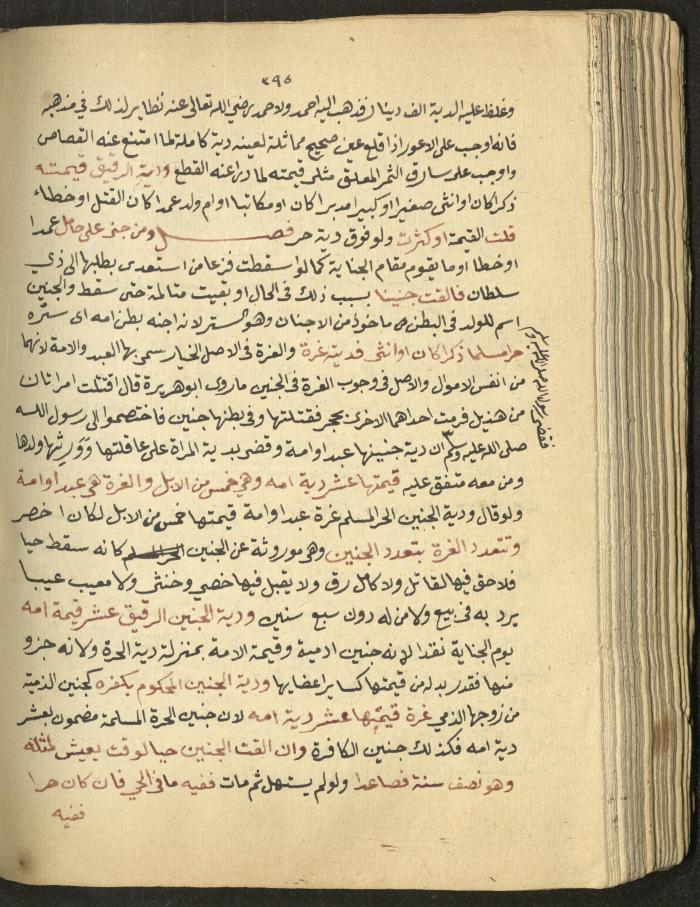 ٣٩٥
وغلظ عليه الدية الف دينار فذهب اليه احمد ولاحمد رضي الله تعالى عنه نظاير لذلك في مذهبه
فانه اوجب على الاعور اذا قلع عين صحيح مماثلة لعينه دية كاملة لما امتنع عنه القصاص
واوجب على سارق الثمر المعلق مثلى قيمته لما درئ عنه القطع ودية الرقيق قيمته
ذكرا كان اوانثى صغيرا اوكبيرا مدبرا كان اومكاتبا اوام ولد عمدا كان القتل اوخطاء
قلت القيمة اوكثرت ولو فوق دية حر فصل ومن جنى على حامل عمدا
اوخطا اوما يقوم مقام الجناية كما لو اسقطت فزعا من استعدى بطلبها الى ذي
سلطان فالقت جنينا بسبب ذلك في الحال او بقيت متالمة حتى سقط والجنين
اسم للولد في البطن ماخوذ من الاجنان وهو الستر لانه اجنه بطن امه اى ستره
حرا مسلما ذكرا كان اوانثى فديته غرة والغرة في الاصل الخيار سمى بها العبد والامة لانهما
من انفس الاموال والاصل في وجوب الغرة في الجنين ما روى ابوهريرة قال اقتتلت امراتان
من هذيل فرمت احداهما الاخرى بحجر فقتلتها وفي بطنها جنين فاختصموا الى رسول الله
فقضى رسول الله صلى الله عليه وسلم
صلى الله عليه وسلم ان دية جنينها عبد اوامة وقضى بدية المراة على عاقلتها وورثها ولدها
ومن معه متفق عليه قيمتها عشر دية امه وهي خمس من الابل والغرة هي عبد اوامة
ولو قال ودية الجنين الحر المسلم غرة عبد اوامة قيمتها خمس من الابل لكان اخصر
وتتعدد الغرة بتعدد الجنين وهو موروثة عن الجنين كانه سقط حيا
فلا حق فيها لقاتل ولا كامل رق ولا يقبل فيها خصي وخنثى ولا معيب عيبا
يرد به في بيع ولا من له دون سبع سنين ودية الجنين الرقيق عشر قيمة امه
يوم الجناية نقدا لانه جنين ادمية وقيمة الامة بمنزلة دية الحرة ولانه جزو
منها فقدر بدله من قيمتها كساير اعضايها ودية الجنين المحكوم بكفره كجنين الذمية
من زوجها الذمي غرة قيمتها عشر دية امه لان جنين الحرة المسلمة مضمون بعشر
دية امه فكذلك جنين الكافرة وان القت الجنين حيا لوقت يعيش لمثله
وهو نصف سنة فصاعدا ولو لم يستهل ثم مات ففيه ما في الحي فان كان حرا
ففيه